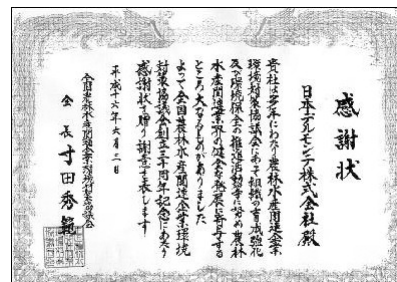 感謝状
日本デルモンテ株式会社殿
貴社は多年にわたり農林水産関連企業
環境対策協議会にあって組織の育成強化
及び環境保全の推進活動等に努め農林
水産関連産業界の健全な発展に寄与する
ところ大なるものがありました
よって全国農林水産関連企業環境
対策協議会創立三十周年記念にあたり
感謝状を贈り謝意を表します
平成十六年六月二日
全国農林水産関連企業環境対策協議会
会長 寸田秀範